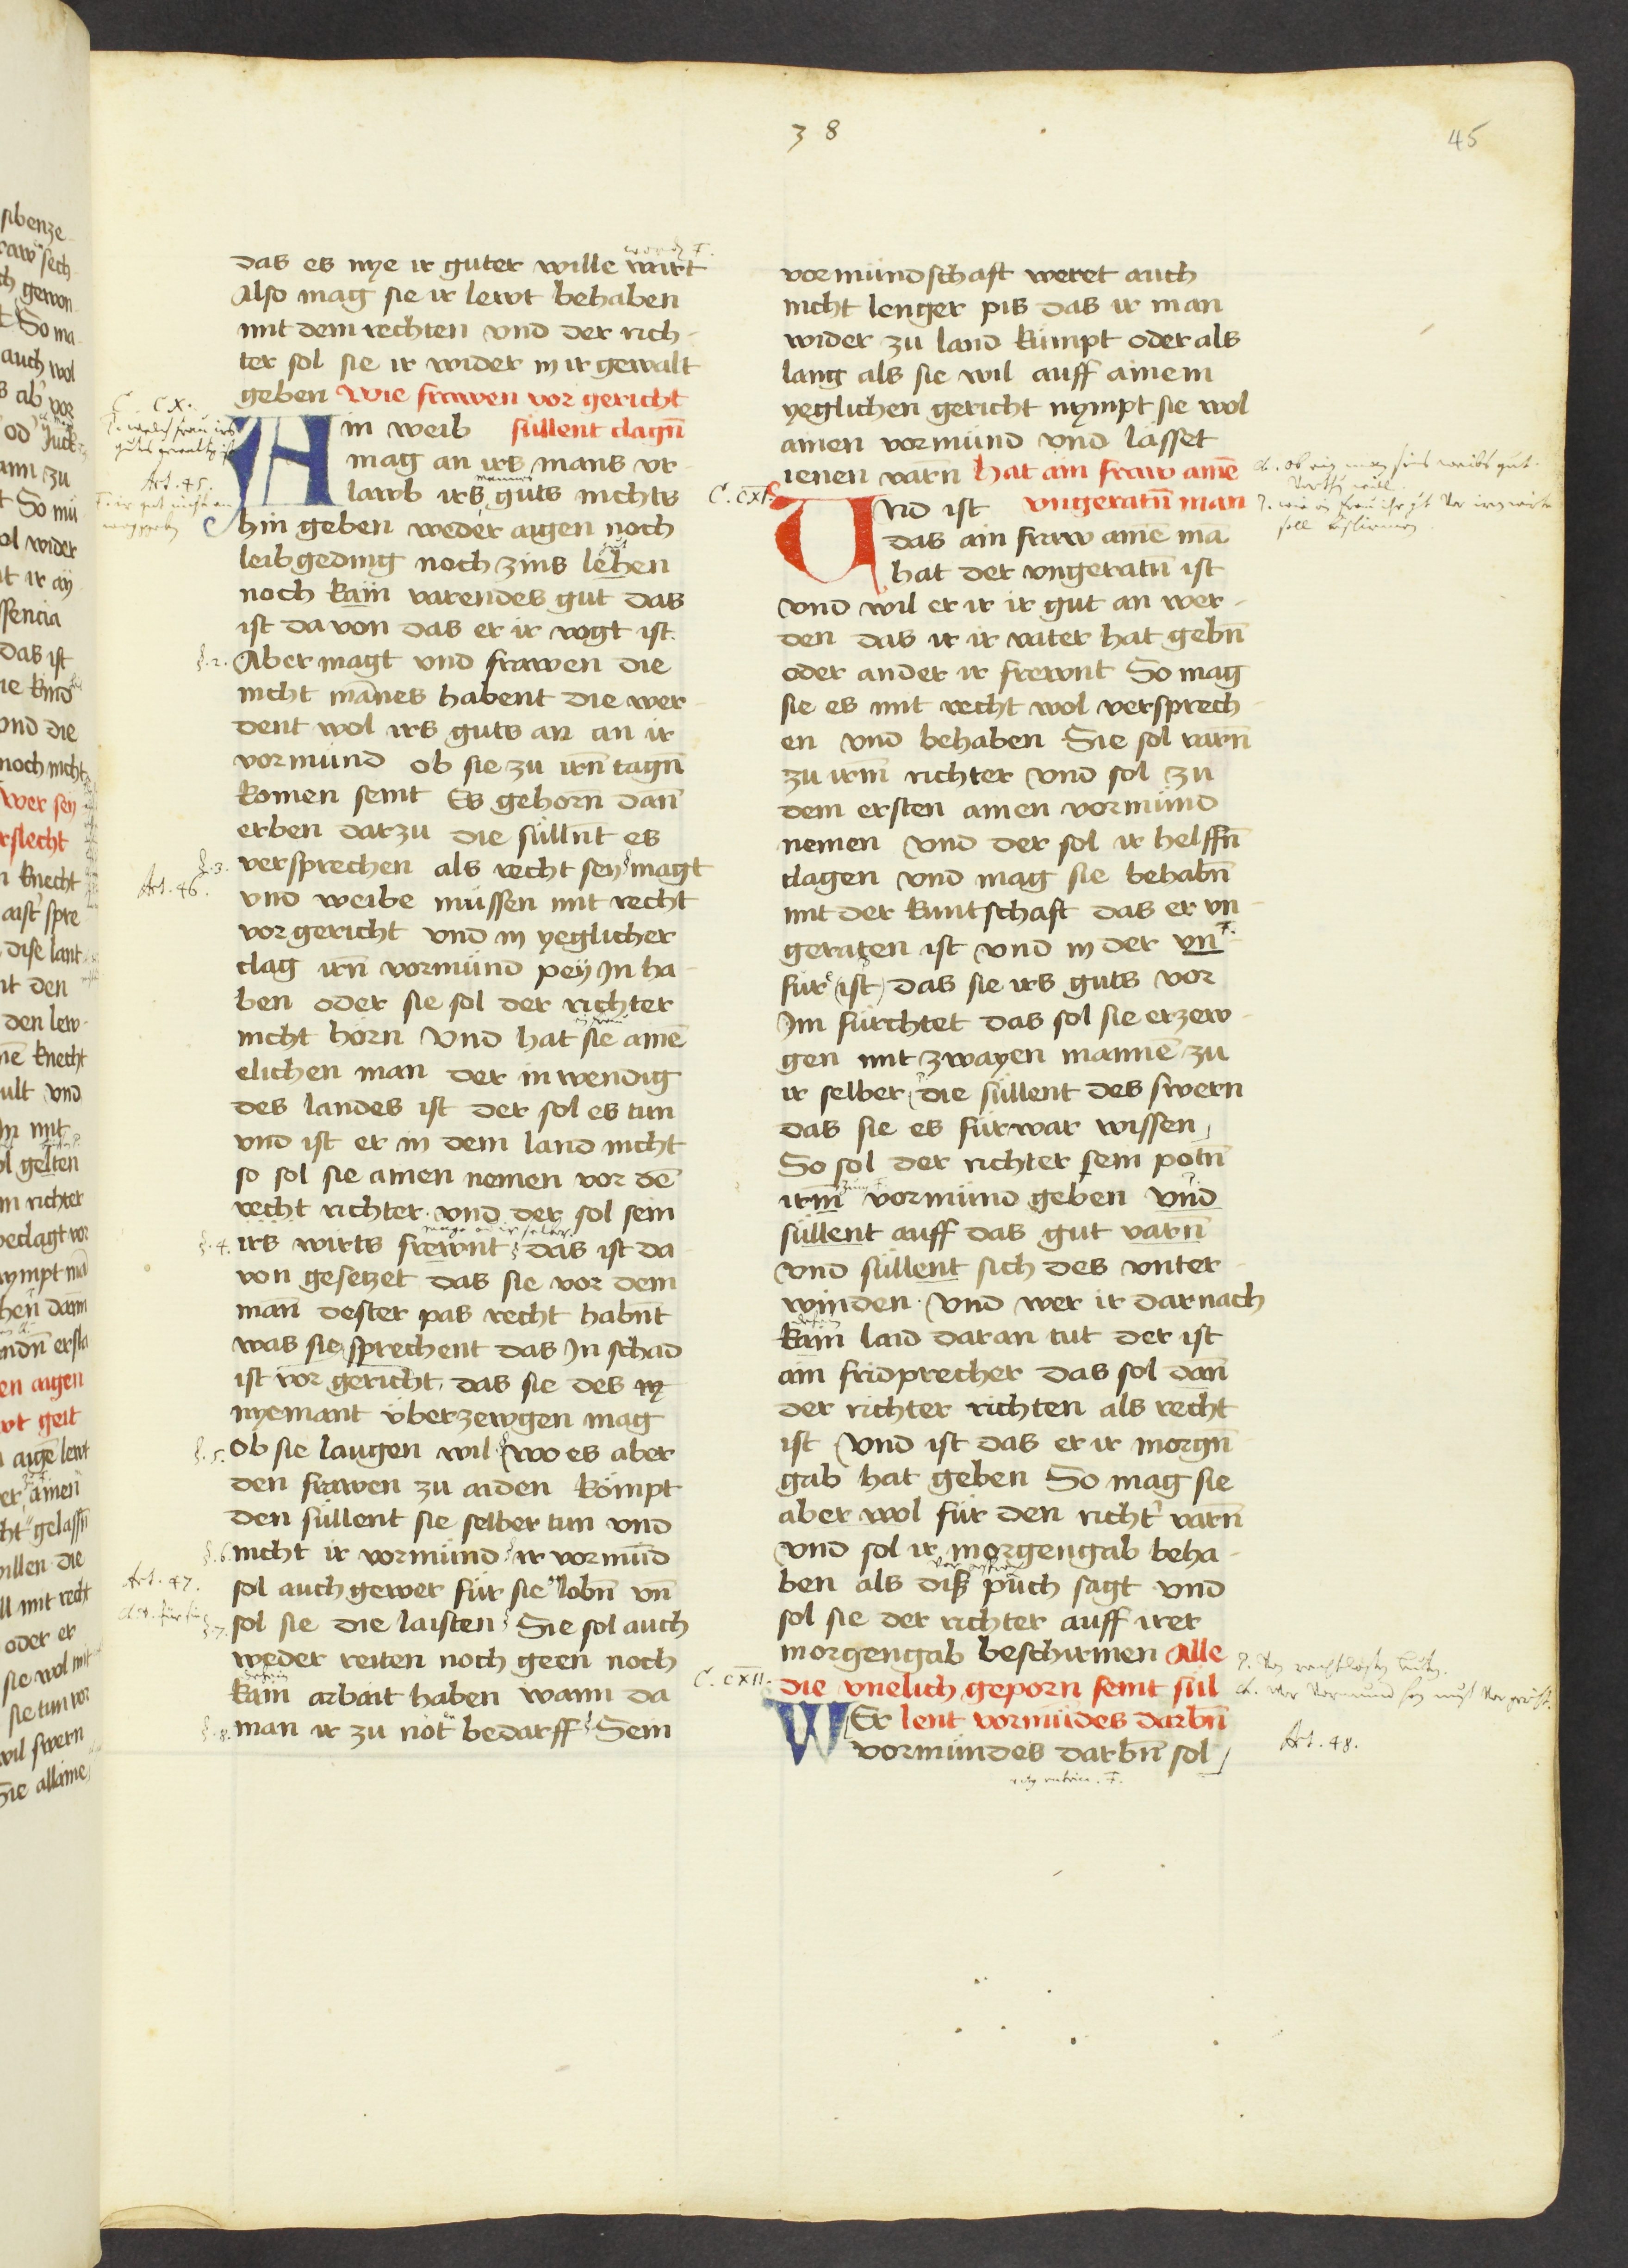 38
45
das es nye ir guter wille wirt
Also mag sie ir lewt behaben
mit dem rechten vnd der rich-
ter sol sie ir wider in ir gewalt
geben Wie frawen vor gericht
Ain weib süllent clagn̄
mag an irs mans vr-
lawb irs guts nichts
hin geben weder aigen noch
leibgeding noch zins lehen
noch kain varendes gut das
ist da von das er ir vogt ist.
§.2. Aber magt vnd frawen die
nicht mānes habent die wer-
dent wol irs guts an an ir
vormund ob sie zu irn̄ tagn̄
komen seint Es gehorn̄ dan̄
erben darzu die süllnt es
§.3. versprechen als recht sey magt
Art. 46.
vnd weibe müssen mit recht
vor gericht vnd in yeglicher
clag irn̄ vormund pey In ha-
ben oder sie sol der richter
nicht hörn Vnd hat sie ainē
elichen man der inwendig
des landes ist der sol es tun
vnd ist er in dem land nicht
so sol sie ainen nemen vor dē
recht richter vnd der sol sein
§.4. irs wirts frewnt das ist da
von gesetzet das sie vor dem
man̄ dester pas recht habn̄t
was sie sprechent das In schad
ist vor gericht das sie des ny
nyemant vberzewgen mag
§.5. Ob sie laugen wil wo es aber
den frawen zu aiden kömpt
den süllent sie selber tun vnd
§.6. nicht ir vormund ir vormūd
Art. 47.
sol auch gewer für sie lobn̄ vn̄
§.7. sol sie die laisten Sie sol auch
weder reiten noch geen noch
kain arbait haben wann da
§.8. man ir zu not bedarff Sein
vormundschaft weret auch
nicht lenger pis das ir man
wider zu land kümpt oder als
lang als sie wil auff ainem
yeglichen gericht nympt sie wol
ainen vormund vnd lässet
ienen varn̄ hat ain fraw ainē
C. CXI.
Vnd ist vngeratn̄ man
das ain fraw ainē mā
hat der vngeratn̄ ist
vnd wil er ir ir gut an wer-
den das ir ir vater hat gebn̄
oder ander ir frewnt So mag
sie es mit recht wol versprech-
en vnd behaben Sie sol varn̄
zu irm̄ richter vnd sol zu
dem ersten ainen vormund
nemen vnd der sol ir helffn̄
clagen vnd mag sie behabn̄
mit der kuntschaft das er vn-
geraten ist vnd in der vn-
für ist das sie irs guts vor
Im fürchtet das sol sie erzew-
gen mit zwayen mannē zu
ir selber die süllent des swern
das sie es fürwar wissen
So sol der richter sein potn̄
irm̄ vormund geben vnd
süllent auff das gut varn̄
vnd süllent sich des vnter-
winden Vnd wer ir darnach
kain laid daran tut der ist
ain fridprecher das sol dan̄
der richter richten als recht
ist Vnd ist das er ir morgn̄-
gab hat geben So mag sie
aber wol für den richt' varn̄
vnd sol ir morgengab beha-
ben als diß puch sagt vnd
sol sie der richter auff irer
morgengab beschirmen Alle
C. CXII.
die vnelich geporn seint sül
WEr lent vormūdes darbn̄
vormundes darbn̄ sol
Art. 48.